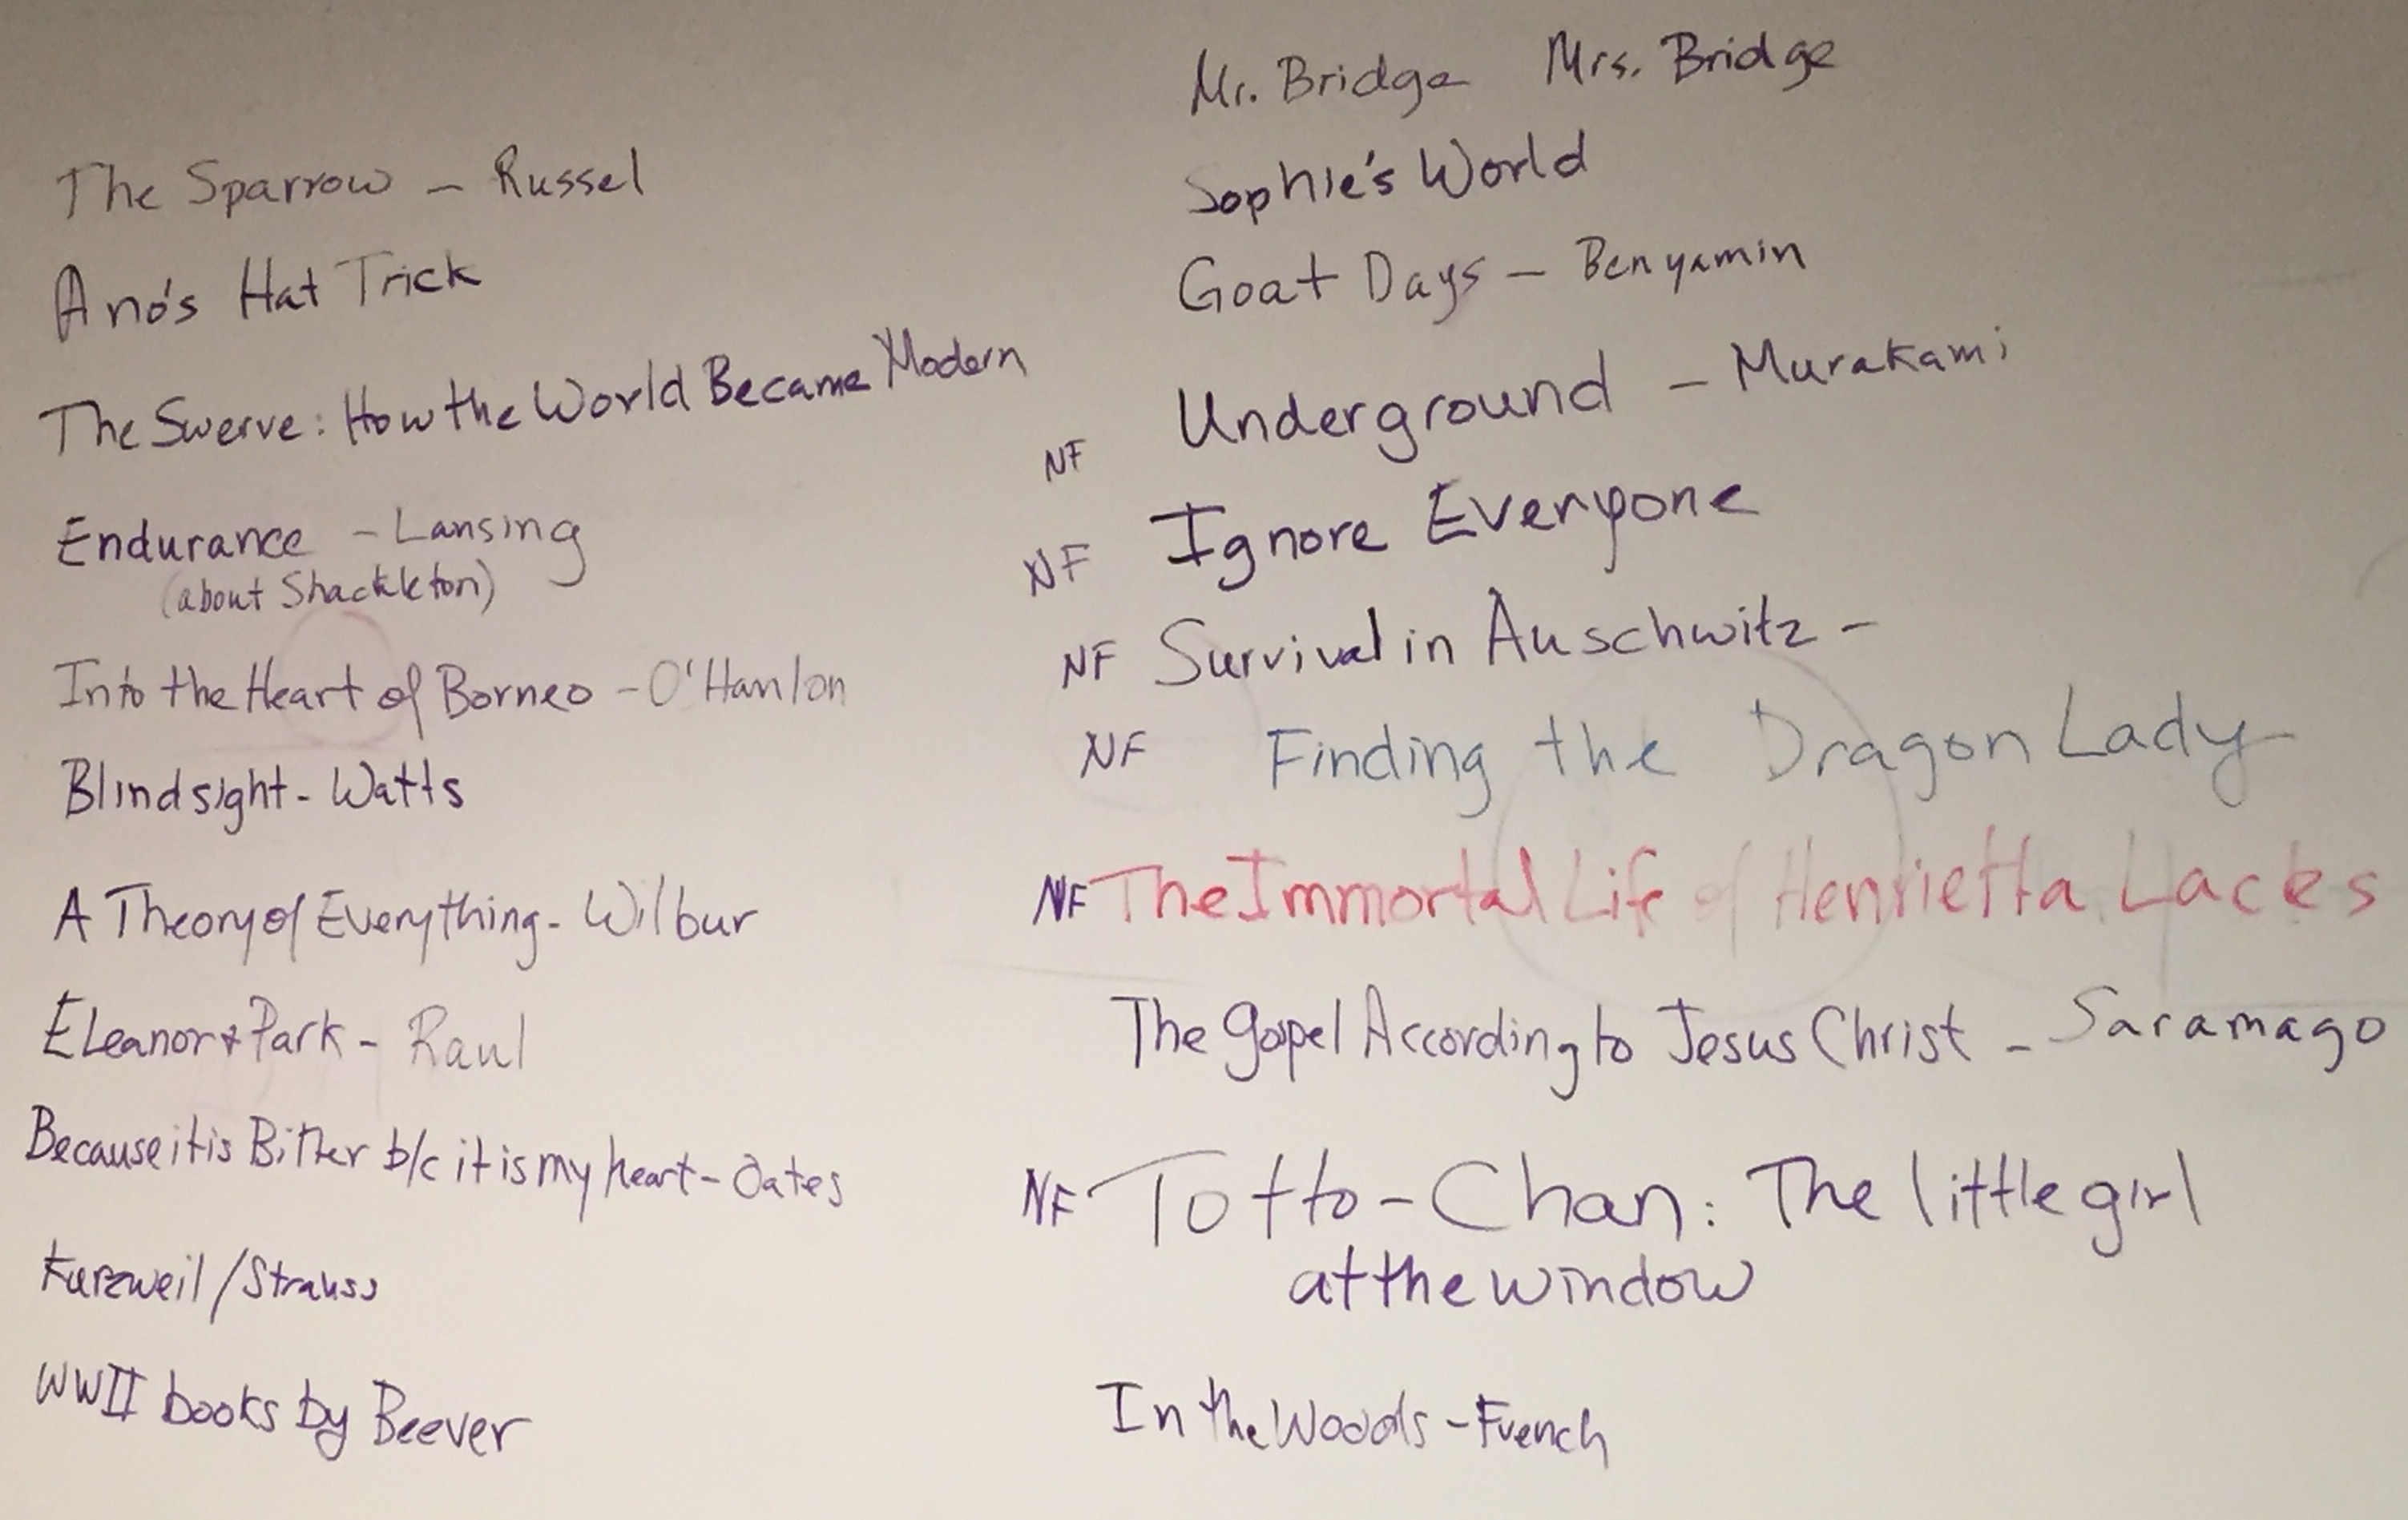 The Sparrow – Russel
Ano's Hat Trick
The Swerve: How the World Became Modern
Endurance – Lansing
(about Shackleton)
Into the Heart of Borneo – O'Hanlon
Blindsight - Watts
A Theory of Everything - Wilbur
Eleanor + Park - Raul
Because it is Bitter b/c it is my heart - Oates
Kurzweil / Strauss
WWII books by Beever
Mr. Bridge Mrs. Bridge
Sophie's World
Goat Days – Benyamin
NF Underground – Murakami
NF Ignore Everyone
NF Survival in Auschwitz –
NF Finding the Dragon Lady
NF The Immortal Life of Henrietta Lacks
The Gospel According to Jesus Christ - Saramago
NF Totto-Chan: The little girl
at the window
In the Woods - French